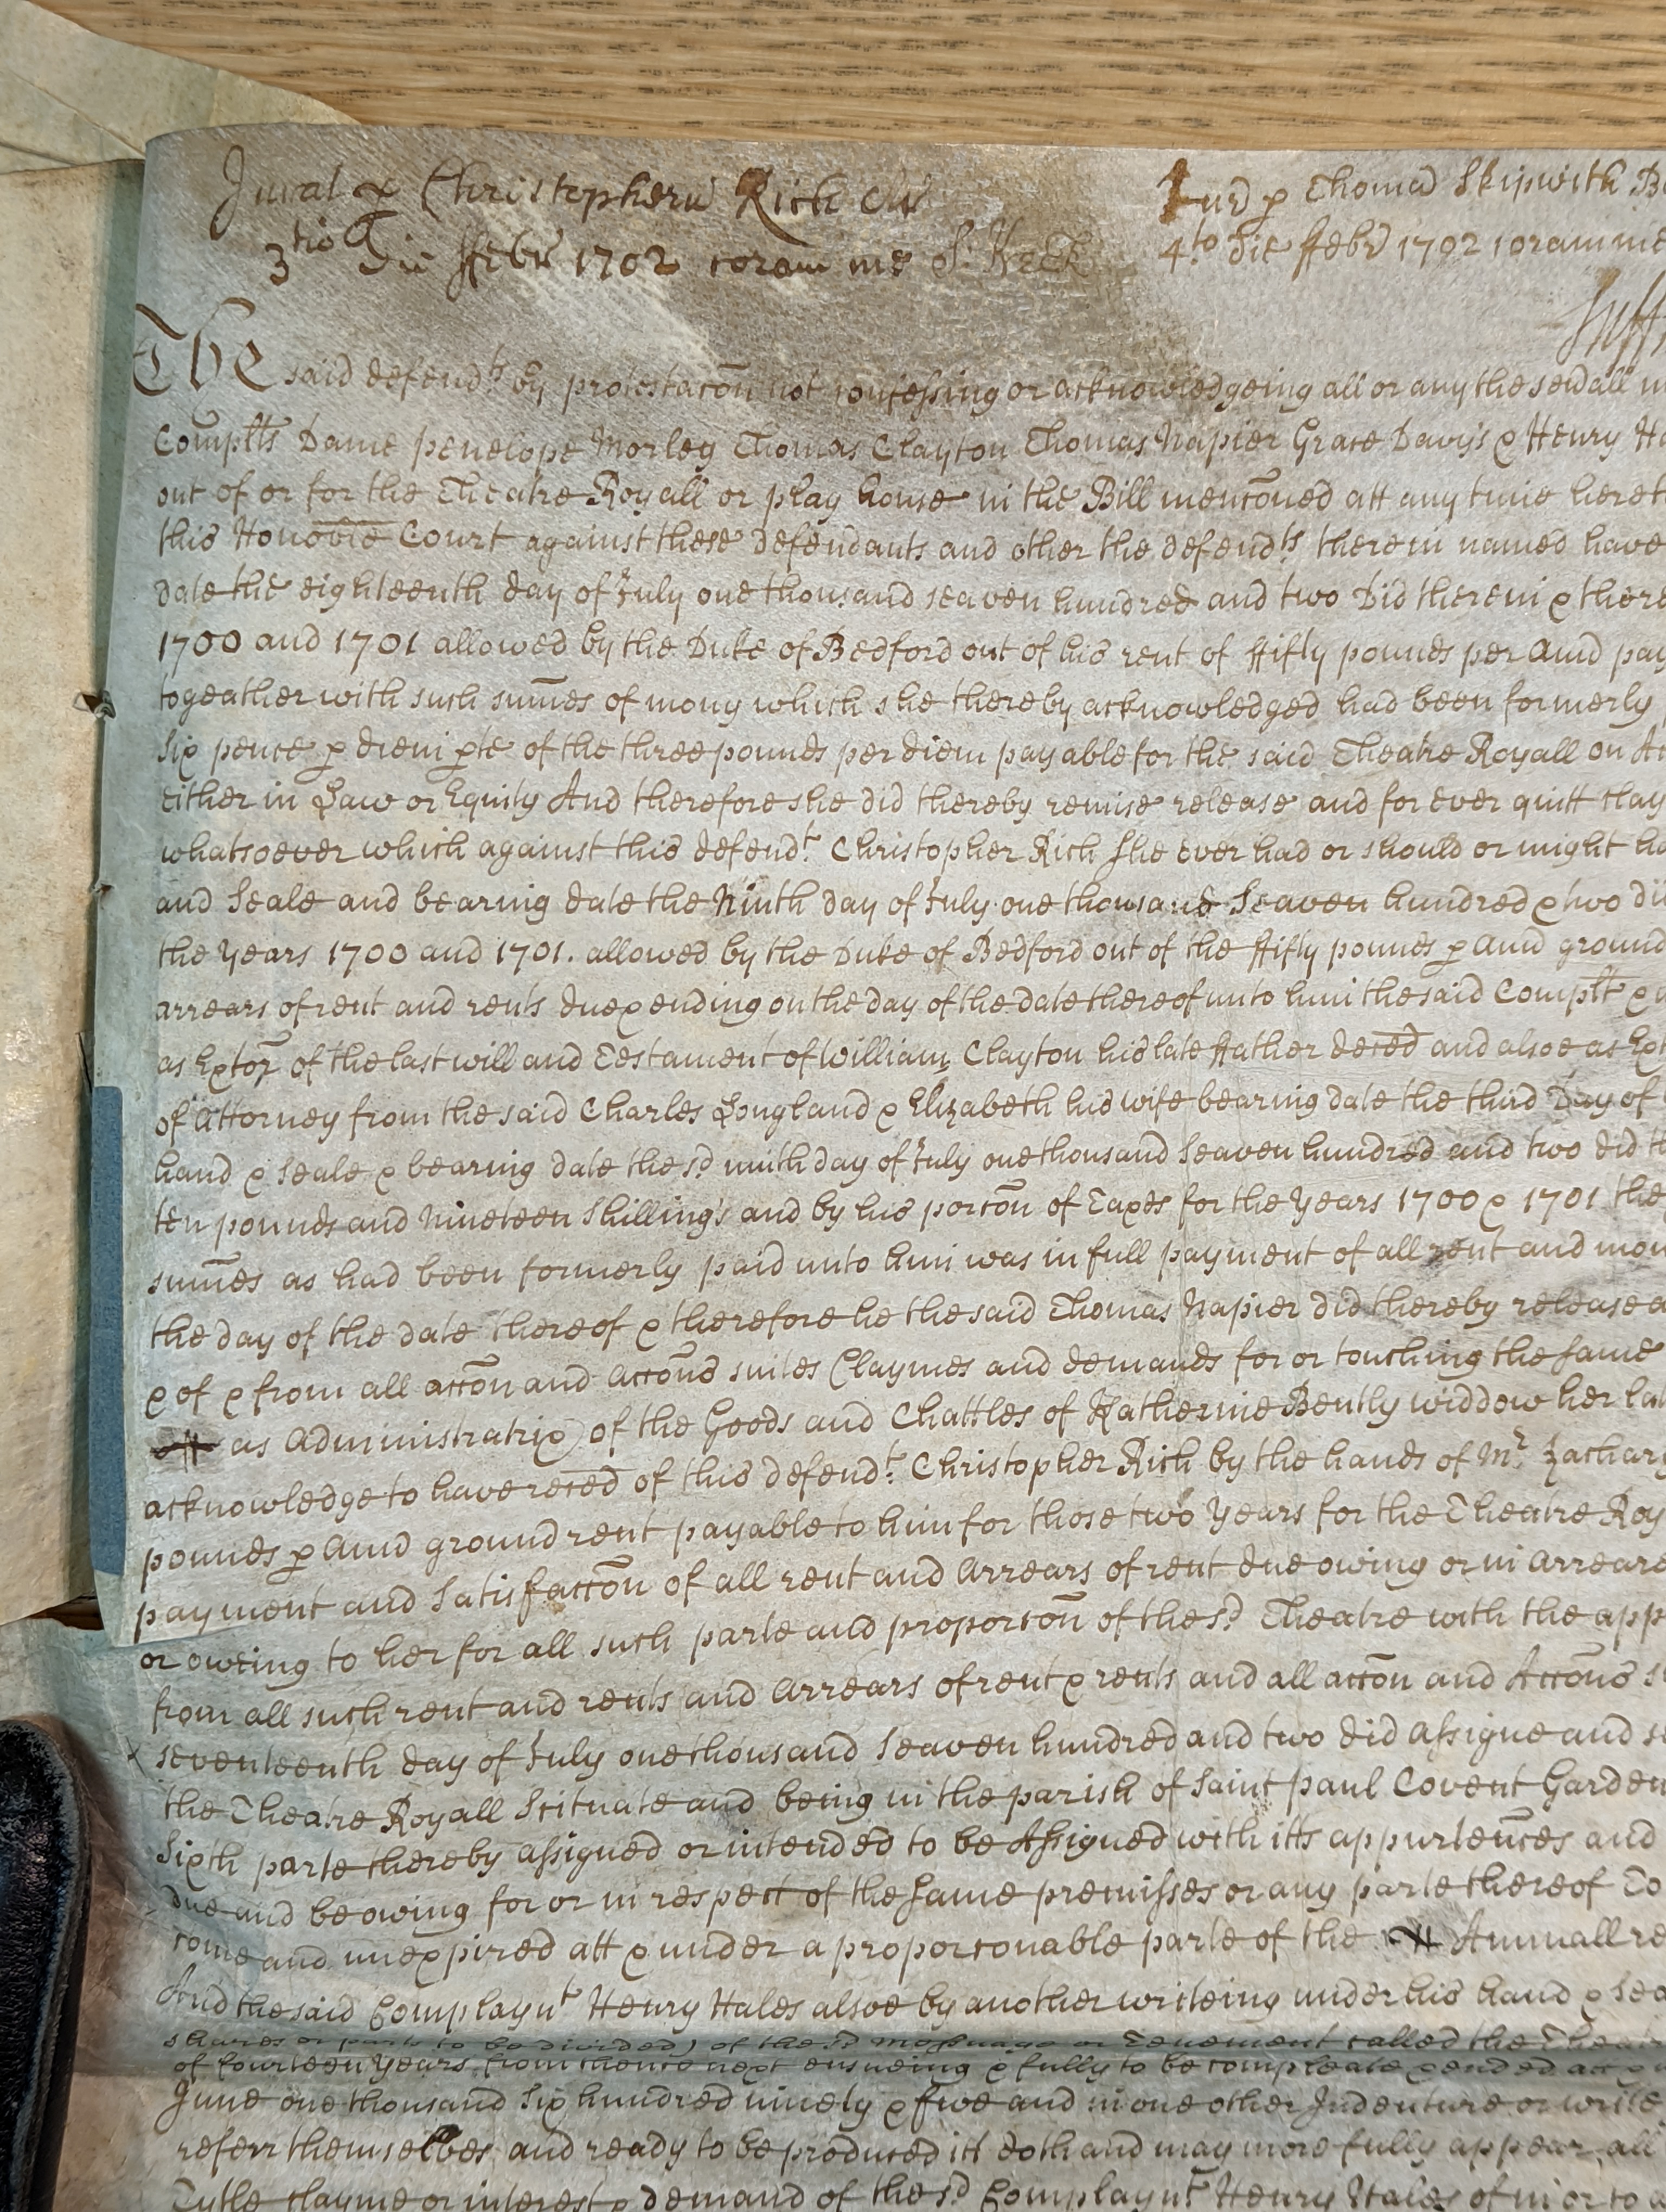 Jurat p Christopherū Rich Ar
3tio Die Febr 1702 coram me S: Keck
Jur p Thomā Skipwith B
4to die ffebr 1702 coram me
The said defendts by protestacōn not confessing or acknowledgeing all or any the sevall m
Complts Dame Penelope Morley Thomas Clayton Thomas Napier Grace Davys & Henry Ha
out of or for the Theatre Royall or play house in the Bill mencōned att any time heret
this Honoble Court against these defendants and other the defendts therein named have
date the eighteenth day of July one thousand seaven hundred and two Did therein & there
1700 and 1701 allowed by the Duke of Bedford out of his rent of ffifty pounds per Annū pay
togeather with such sumes of mony which she thereby acknowledged had been formerly
Six pence p diem pte of the three pounds per diem payable for the said Theatre Royall on Ac
either in Law or Equity And therefore she did thereby remise release and for ever quitt clay
whatsoever which against this defendt Christopher Rich she ever had or should or might ha
and Seale and bearing date the Ninth day of July one thousand Seaven hundred & two di
the Years 1700 and 1701. allowed by the Duke of Bedford out of the ffifty pounds p Annū ground
arrears of rent and rents due & ending on the day of the date thereof unto him the said Complt &
as Extor of the last will and Testament of William Clayton his late ffather deced and alsoe as Ext
of Attorney from the said Charles Longland & Elizabeth his wife bearing date the third Day of
hand & Seale & bearing date the sd ninth day of July one thousand Seaven hundred and two did t
ten pounds and Nineteen Shillings and by his porcōn of Taxes for the Years 1700 & 1701 the
sumes as had been formerly paid unto him was in full payment of all rent and mon
the day of the date thereof & therefore he the said Thomas Napier did thereby release a
& of & from all accōn and accōns suites Claymes and demands for or touching the same
as Administratrix of the Goods and Chattles of Katherine Bently widdow her lat
acknowledge to have reced of this defendt Christopher Rich by the hands of Mr Zachary
pounds p Annū ground rent payable to him for those two Years for the Theatre Roy
payment and Satisfaccōn of all rent and Arrears of rent due owing or in Arreare
or oweing to her for all such parte and proporcōn of the sd Theatre with the app
from all such rent and rents and Arrears of rent & rents and all accōn and Accōns s
seventeenth day of July one thousand Seaven hundred and two did Assigne and s
the Theatre Royall Scituate and being in the parish of Saint Paul Covent Garden
Sixth parte thereby assigned or intended to be Assigned with itts appurtences and
due and be owing for or in respect of the same premisses or any parte thereof To
come and unexpired att & under a proporconable parte of the Annuall re
And the said Complaynt Henry Hales alsoe by another writeing under his hand & Sea
shares or parts to be divided) of the sd Messuage or Tenement called the Theat
of fourteen Years from thence next ensueing & fully to be compleate & ended att &
June one thousand Six hundred ninety & five and in one other Indenture or write
referr themselves and ready to be produced itt doth and may more fully appear all
Tytle clayme or interest & demand of the sd Complaynt Henry Hales of in or to